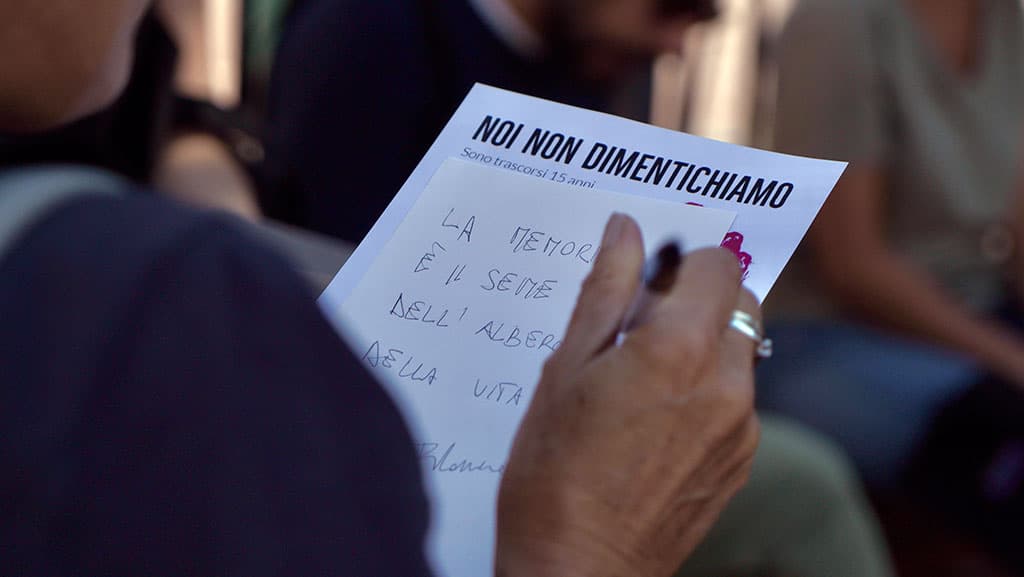 NOI NON DIMENTICHIAMO
Sono trascorsi 15 anni
LA MEMORI
È IL SEME
DELL' ALBERO
DELLA VITA